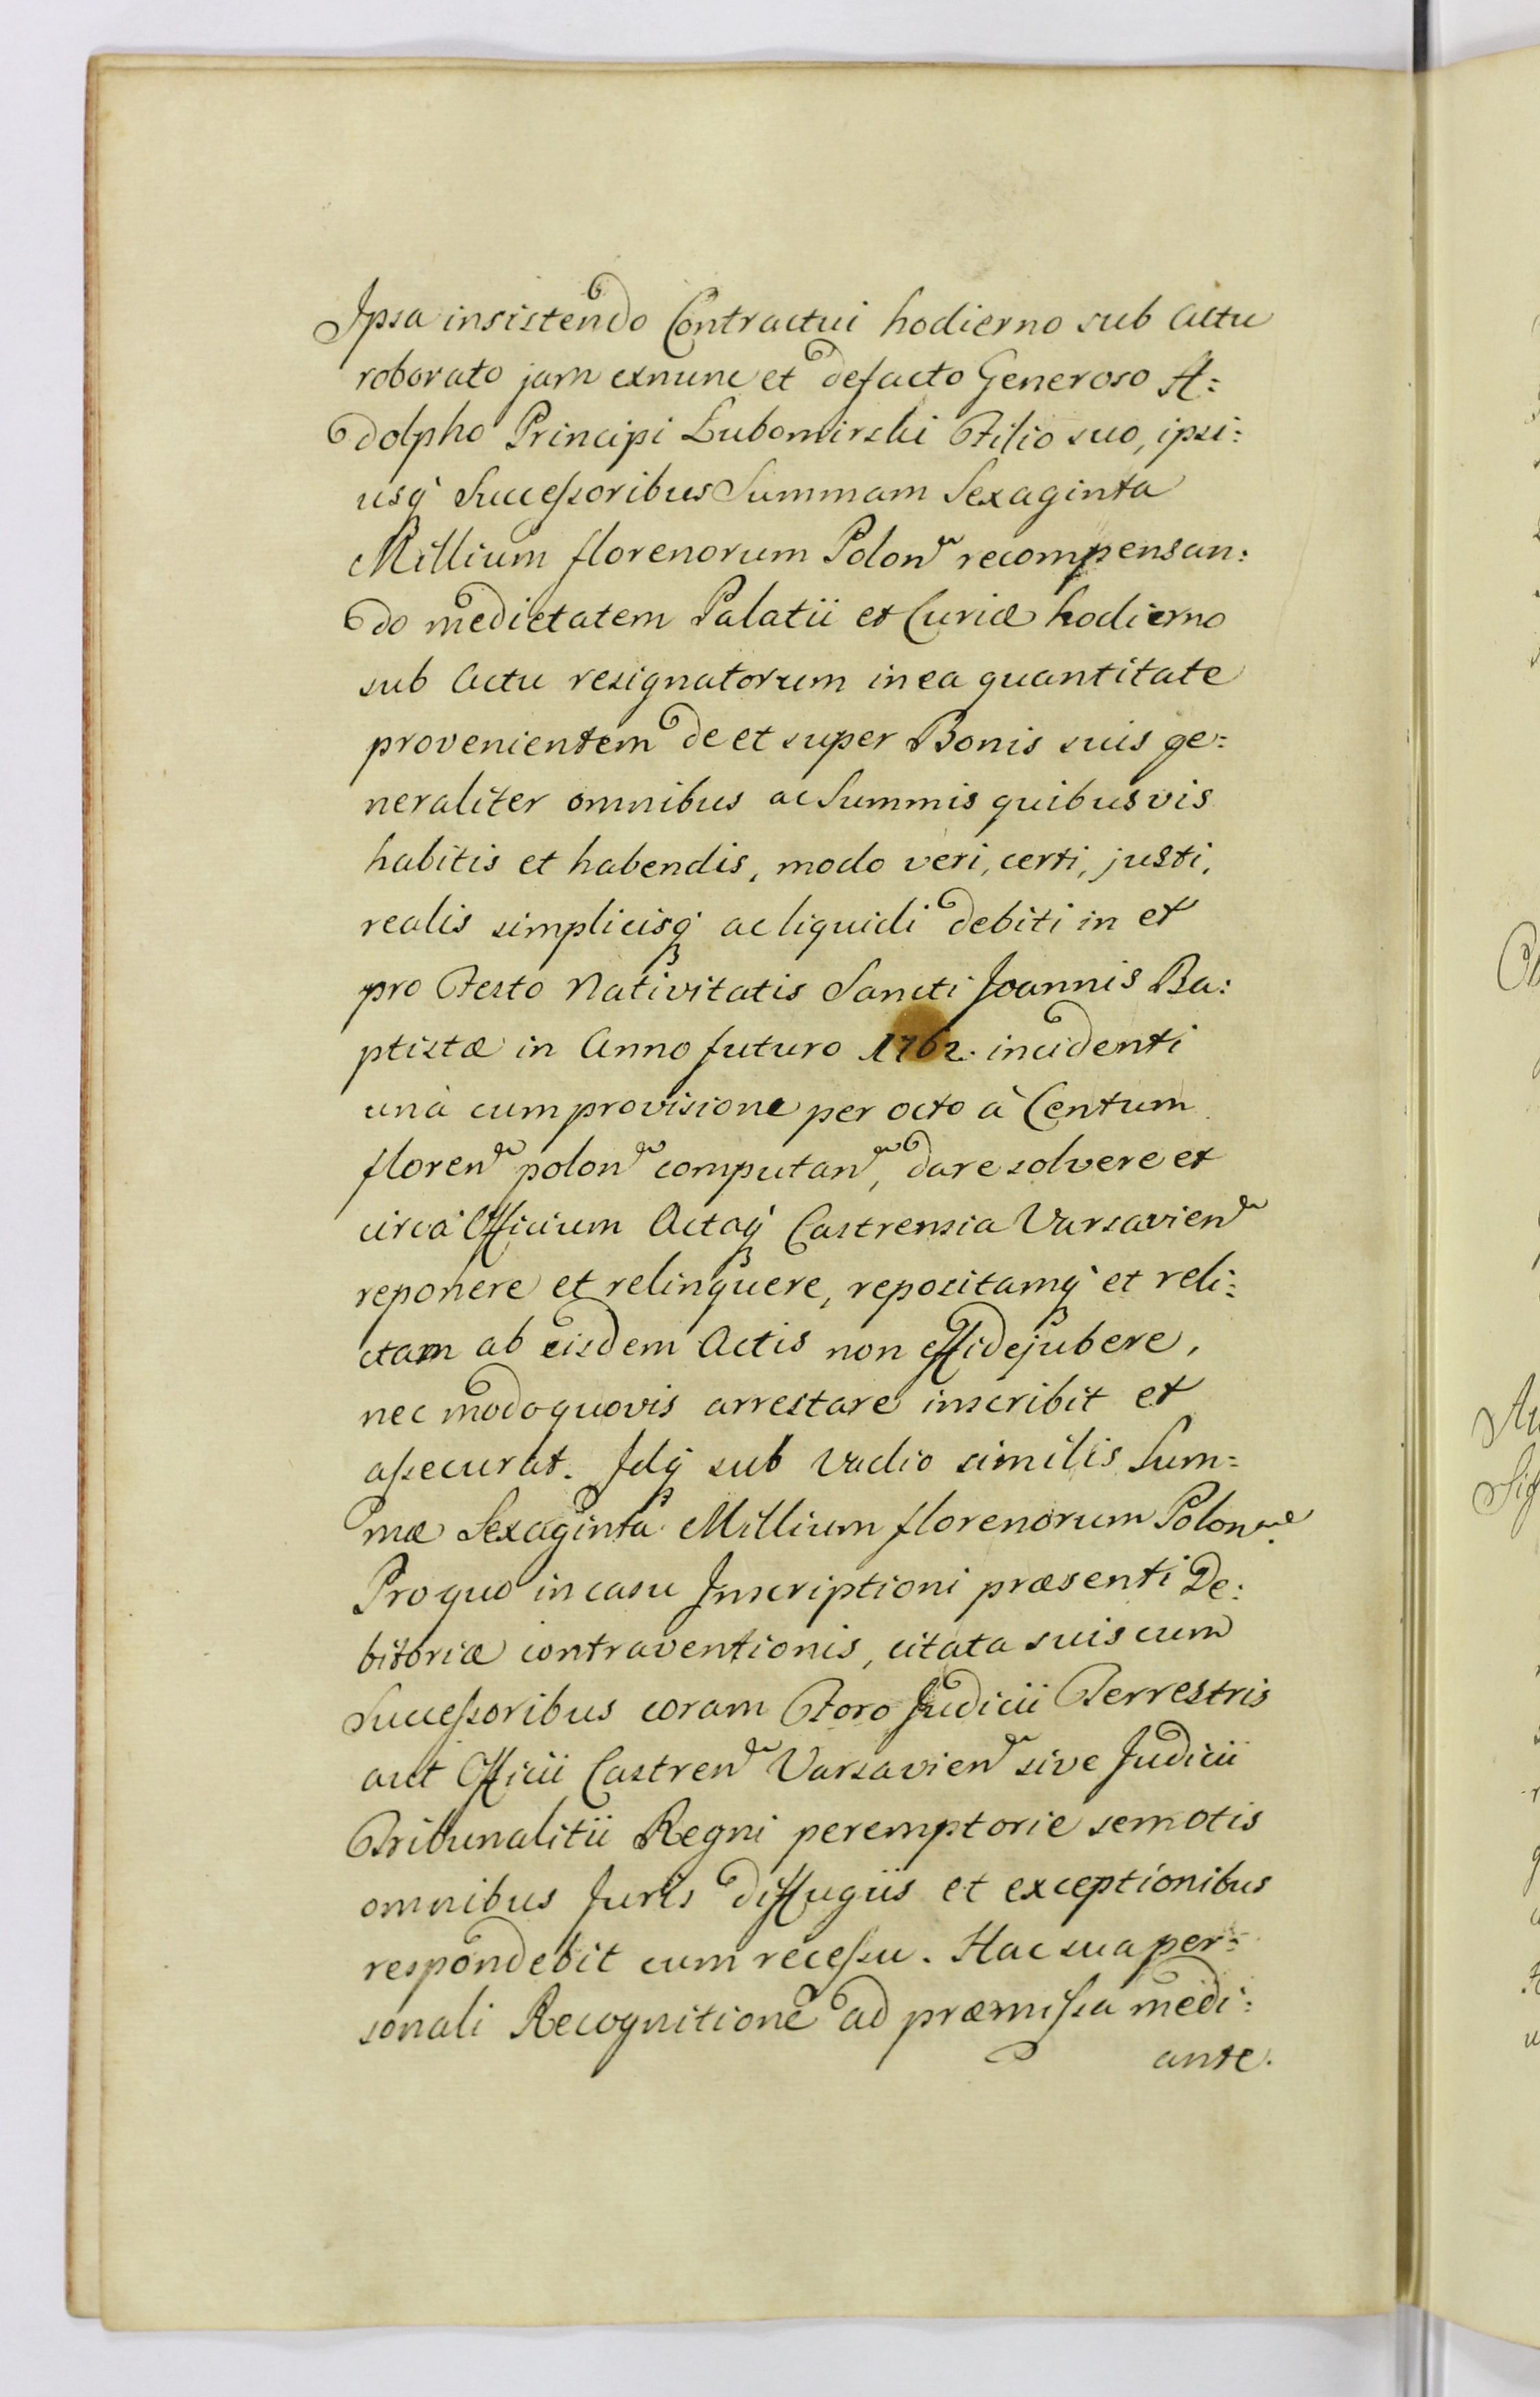 Ipsa insistendo Contractui hodierno sub Actu
roborato jam exnunc et defacto Generoso A=
dolpho Principi Lubomirski Filio suo, ipsi=
usq́ Succeſsoribus Summam Sexaginta
Millium florenorum Polon̄ recompensan=
do medietatem Palatii et Curiæ hodierno
sub Actu resignatorum in ea quantitate
provenientem de et super Bonis suis ge=
neraliter omnibus ac Summis quibusvis
habitis et habendis, modo veri, certi, justi,
realis simplicisq́ ac liquidi debiti in et
pro Festo Nativitatis Sancti Joannis Ba=
ptistæ in Anno futuro 1762. incidenti
unà cum provisione per octo à Centum
floren̄ polon̄ computan̄, dare solvere et
circa Officium Actaq́ Castrensia Varsavien̄
reponere et relinquere, repositamq́ et reli=
ctam ab eisdem Actis non effidejubere,
nec modoquovis arrestare inscribit et
aſsecurat. Idq́ sub Vadio similis Sum=
mæ Sexaginta Millium florenorum Polon̄.
Pro quo in casu Inscriptioni præsenti De=
bitoriæ contraventionis, citata suis cum
Succeſsoribus coram Foro Judicii Terrestris
aut Officii Castren̄ Varsavien̄ sive Judicii
Tribunalitii Regni peremptorie semotis
omnibus Juris diffugiis et exceptionibus
respondebit cum receſsu. Hac sua per=
sonali Recognitione ad præmiſsa medi=
ante.